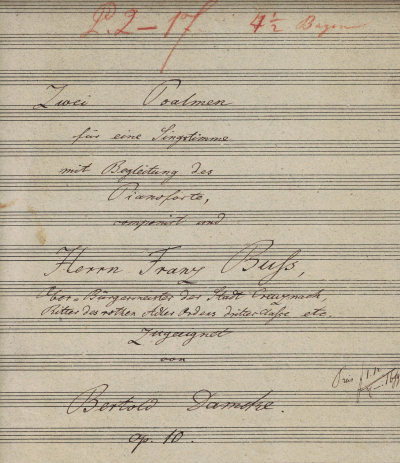 4 1/2 Bogen
Zwei Psalmen
für eine Singstimme
mit Begleitung des
Pianoforte,
componirt und
Herrn Franz Buss,
Ober-Bürgermeister der Stadt Creuznach,
Ritter des rothen Adler Ordens dritter Classe etc.
Zugeeignet
von
Bertold Damcke.
op. 10.